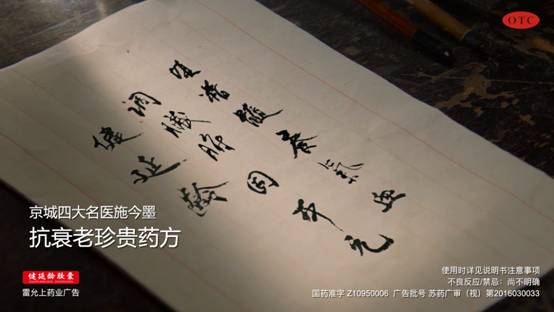 OTC
填精髓养气血
调脏腑固本元
健延龄
京城四大名医施今墨
抗衰老珍贵药方
健延龄胶囊
雷允上药业广告
使用时详见说明书注意事项
不良反应/禁忌：尚不明确
国药准字 Z10950006 广告批号 苏药广审（视）第2016030033